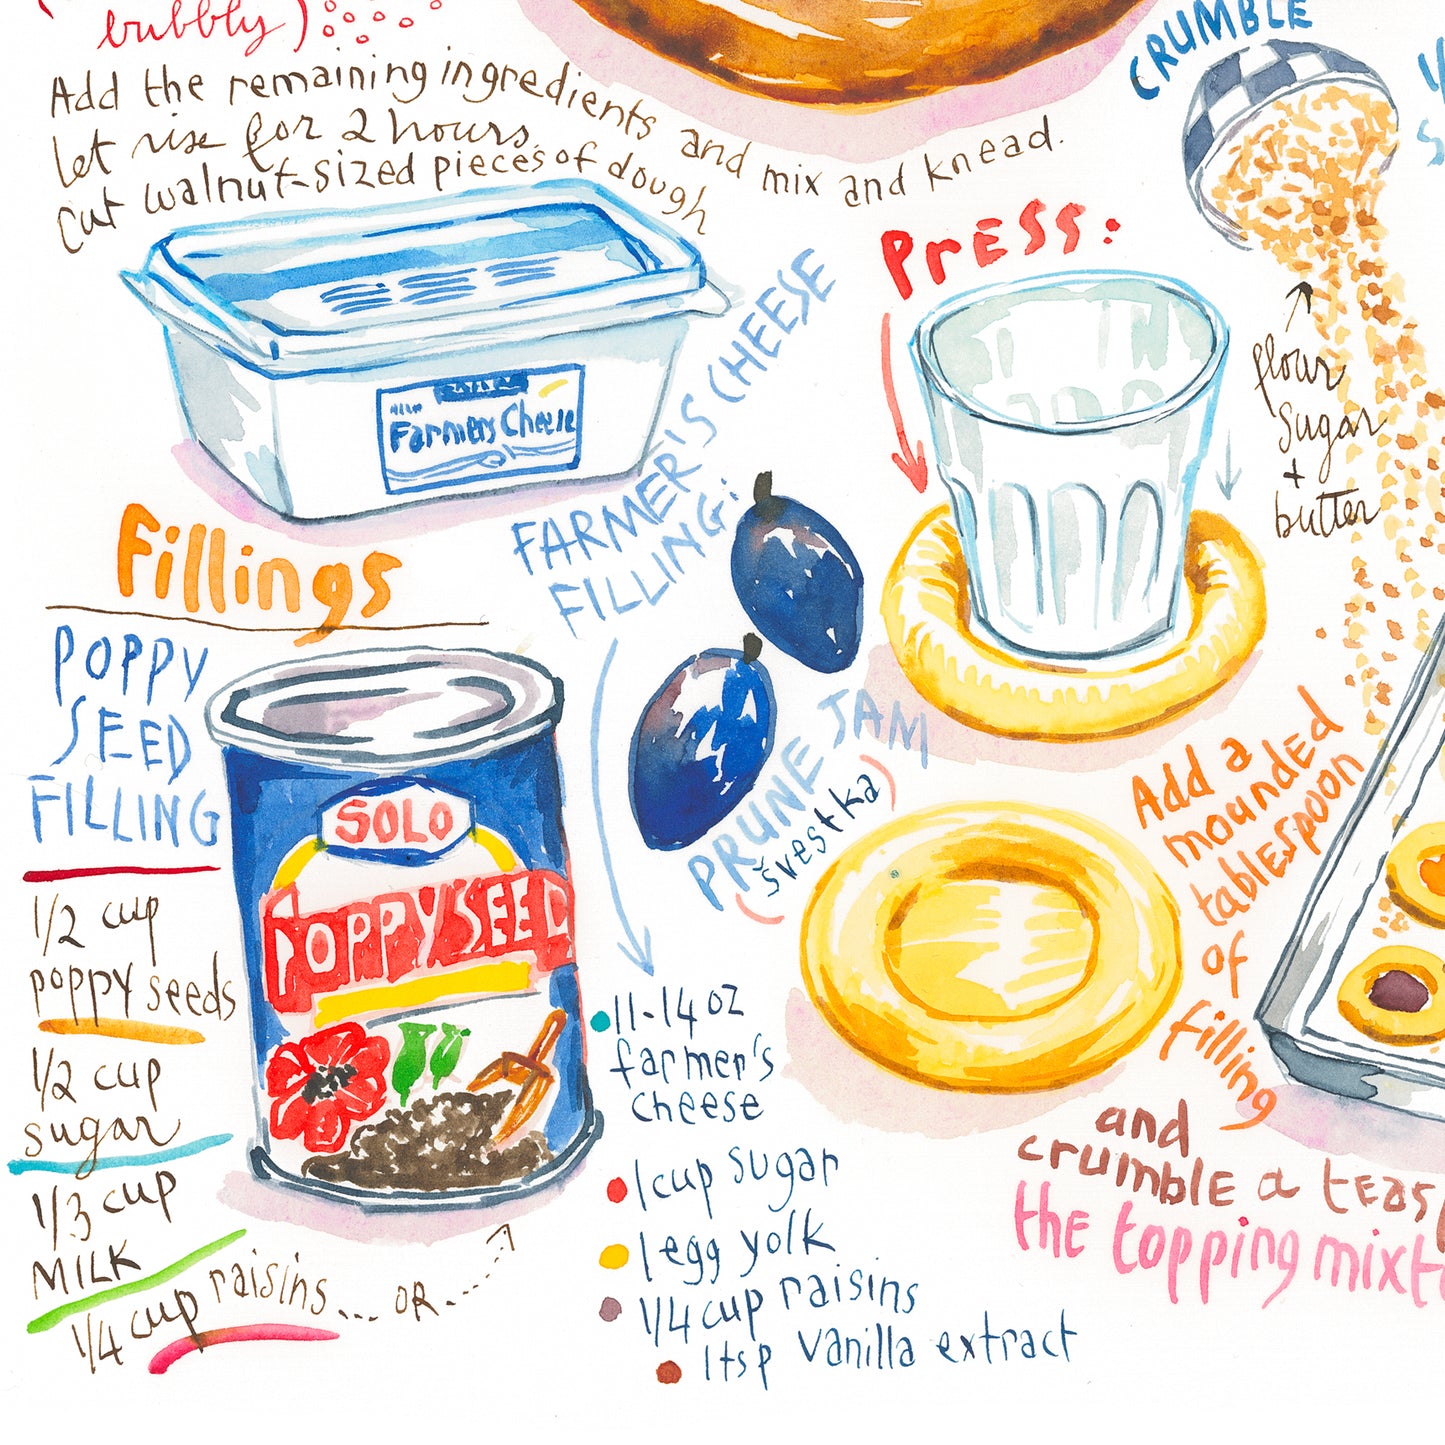 bubbly)
Add the remaining ingredients and mix and knead.
let rise for 2 hours.
Cut walnut-sized pieces of dough
CRUMBLE
PrESS:
flour
Sugar
+
butter
Farmers Cheese
FARMER'S CHEESE
FILLING:
Fillings
POPPY
SEED
FILLING
SOLO
POPPYSEED
1/2 cup
poppy seeds
1/2 cup
sugar
1/3 cup
MILK
1/4 cup raisins... OR...
PRUNE JAM
(švestka)
11-14 oz
farmer's
cheese
1 cup sugar
1 egg yolk
1/4 cup raisins
1tsp vanilla extract
Add a
mounded
tablespoon
of
filling
and
crumble a teas
the topping mixt